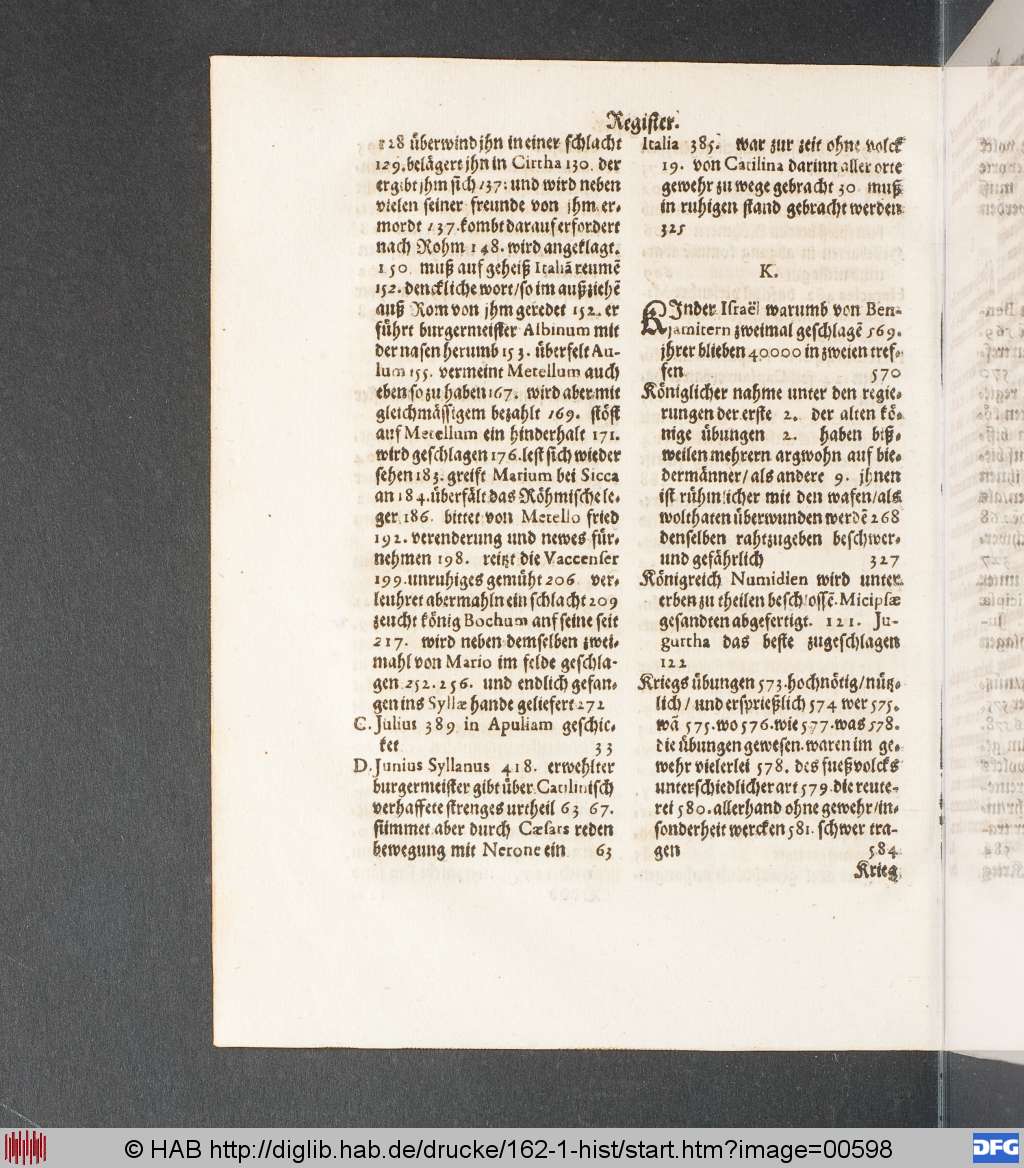 Register.
128 überwind jhn in einer schlacht
129. belägert jhn in Cirtha 130. der
ergibt jhm sich 137: und wird neben
vielen seiner freunde von jhm er-
mordt 137. kombt darauf erfordert
nach Rohm 148. wird angeklagt.
150 muß auf geheiß Italiā reumē
152. denckliche wort/ so im außziehē
auß Rom von jhm geredet 152. er
führt burgermeister Albinum mit
der nasen herumb 153. überfelt Au-
lum 155. vermeint Metellum auch
eben so zu haben 167. wird aber mit
gleichmässigem bezahlt 169. stöst
auf Metellum ein hinderhalt 171.
wird geschlagen 176. lest sich wieder
sehen 183. greift Marium bei Sicca
an 184. überfält das Röhmische le-
ger 186. bittet von Metello fried
192. verenderung und newes für-
nehmen 198. reitzt die Vaccenser
199. unruhiges gemüht 206 ver-
leuhret abermahln ein schlacht 209
zeucht könig Bochum auf seine seit
217. wird neben demselben zwei-
mahl von Mario im felde geschla-
gen 252. 256. und endlich gefan-
gen ins Syllæ hande geliefert 272
C. Julius 389 in Apuliam geschic-
ket 33
D. Junius Syllanus 418. erwehlter
burgermeister gibt über Catilinisch
verhaffete strenges urtheil 63 67.
stimmet aber durch Cæsars reden
bewegung mit Nerone ein 63
Italia 385. war zur zeit ohne volck
19. von Catilina darinn aller orte
gewehr zu wege gebracht 30 muß
in ruhigen stand gebracht werden
325
K.
KInder Israël warumb von Ben-
jamitern zweimal geschlagē 569.
jhrer blieben 40000 in zweien tref-
fen 570
Königlicher nahme unter den regie-
rungen der erste 2. der alten kö-
nige übungen 2. haben biß-
weilen mehrern argwohn auf bie-
dermänner/ als andere 9. jhnen
ist rühmlicher mit den wafen/ als
wolthaten überwunden werdē 268
denselben rahtzugeben beschwer-
und gefährlich 327
Königreich Numidien wird unter
erben zu theilen beschlossē. Micipsæ
gesandten abgefertigt. 121. Ju-
gurtha das beste zugeschlagen
122
Kriegs übungen 573. hochnötig/ nütz-
lich/ und ersprießlich 574 wer 575.
wā 575. wo 576. wie 577. was 578.
die übungen gewesen. waren im ge-
wehr vielerlei 578. des fueßvolcks
unterschiedlicher art 579. die reute-
rei 580. allerhand ohne gewehr/ in-
sonderheit wercken 581. schwer tra-
gen 584
Krieg
© HAB http://diglib.hab.de/drucke/162-1-hist/start.htm?image=00598
DFG